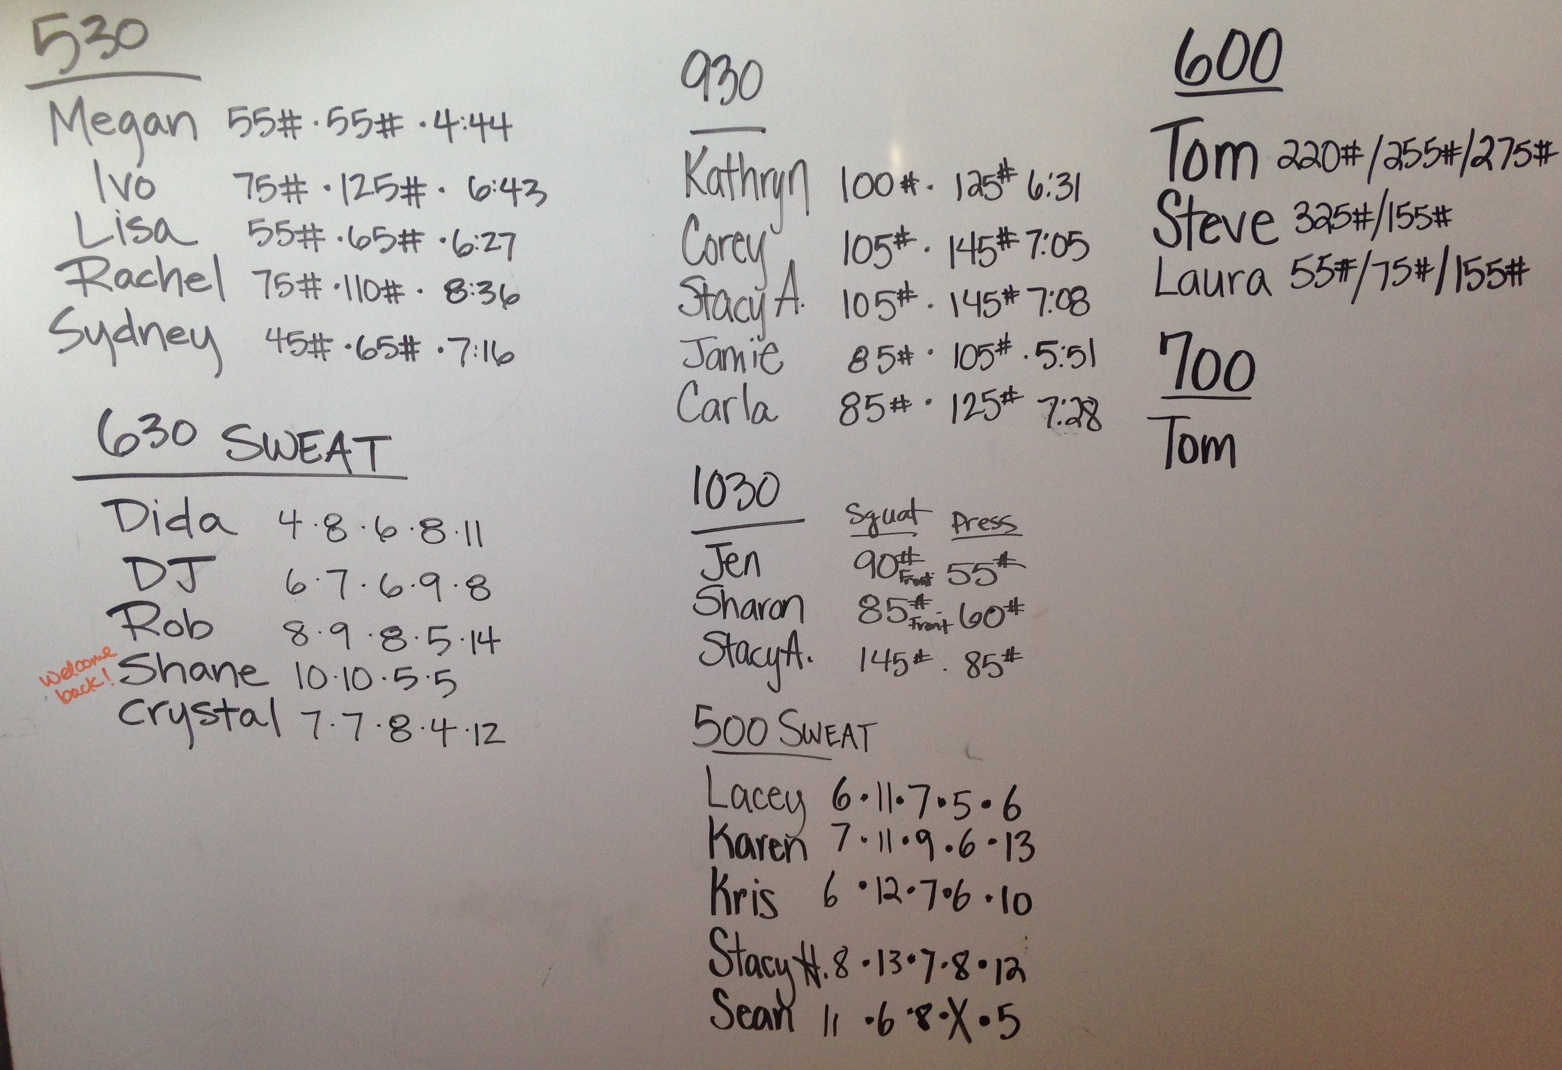 530
Megan 55# · 55# · 4:44
Ivo 75# · 125# · 6:43
Lisa 55# · 65# · 6:27
Rachel 75# · 110# · 8:36
Sydney 45# · 65# · 7:16
630 SWEAT
Dida 4 · 8 · 6 · 8 · 11
DJ 6 · 7 · 6 · 9 · 8
Rob 8 · 9 · 8 · 5 · 14
welcome
back!
Shane 10 · 10 · 5 · 5
Crystal 7 · 7 · 8 · 4 · 12
930
Kathryn 100# · 125# 6:31
Corey 105# · 145# 7:05
Stacy A. 105# · 145# 7:08
Jamie 85# · 105# · 5:51
Carla 85# · 125# 7:28
1030 Squat Press
Jen 90# Front 55#
Sharon 85# Front · 60#
Stacy A. 145# · 85#
500 SWEAT
Lacey 6 · 11 · 7 · 5 · 6
Karen 7 · 11 · 9 · 6 · 13
Kris 6 · 12 · 7 · 6 · 10
Stacy H. 8 · 13 · 7 · 8 · 12
Sean 11 · 6 · 8 · X · 5
600
Tom 220#/255#/275#
Steve 325#/155#
Laura 55#/75#/155#
700
Tom